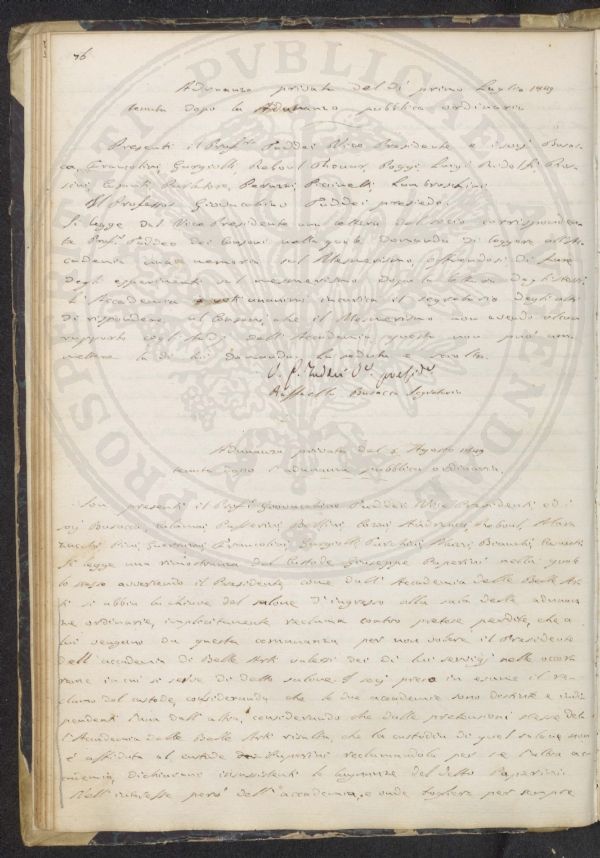 76
Adunanza privata del dì primo Luglio 1849
tenuta dopo la Adunanza pubblica ordinaria
Presenti il Prof.r Taddei Vice Presidente e i socj Busac-
ca, Franceolini, Gargiolli, Raboul Thouar, Poggi, Luigi Ridolfi,
Parlatore, Peruzzi, Lambruschini
Il Professor Giovacchino Taddei presiede
Si legge dal Vice Presidente una lettera del socio corrisponden
te Prof.r Taddeo dei Consoni nella quale domanda di leggere all'Ac
cademia una memoria sul Mesmerismo, offrendosi di fare
degli esperimenti sul mesmerismo dopo la lettura degli stessi
L'Accademia a voti unanimi incarica il segretario degli atti
di rispondere al Consoni, che il Mesmerismo non avendo alcun
rapporto cogli studj dell'Accademia questa non può am
mettere la di lui domanda. La seduta è sciolta.
Raffaello Busacca Segretario
Adunanza privata del 5 Agosto 1849
tenuta dopo l'adunanza pubblica ordinaria.
Son presenti il Prof.r Giovacchino Taddei Vice Presidente ed i
socj Busacca,
Si legge una rimostranza del Custode Giuseppe Paperini nella quale
lo stesso avvertendo il Presidente, come dall'Accademia delle Belle Ar
ti si abbia la chiave del salone d'ingresso alla sala delle adunan
ze ordinarie, implicitamente reclama contro pretese perdite, che a
lui vengano da questa comunanza per non volere il Presidente
dell'accademia di Belle Arti valersi dei di lui servigj nelle occor
renze in cui si serve di detto salone. I socj preso in esame il re
clamo del custode, considerando che le due accademie sono distinte e indi
pendenti l'una dall'altra, considerando che dalle pretensioni stesse del
l'Accademia delle Belle Arti risulta, che la custodia di quel salone non
è affidata al custode Paperini reclamandola per se l'altra ac
cademia, dichiarano insussistenti le lagnanze del detto Paperini.
Nell'interesse però dell'accademia, e onde togliere per sempre